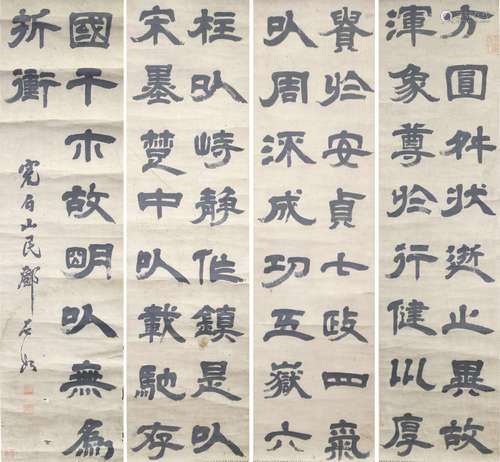 方圓舛狀逝止異故
渾象尊於行健川厚
貴於安貞七政四氣
以周流成功五嶽六
柱以峙靜作鎮是以
宋墨楚申以載馳存
國干木故明以無為
折衝
完白山民鄧石如